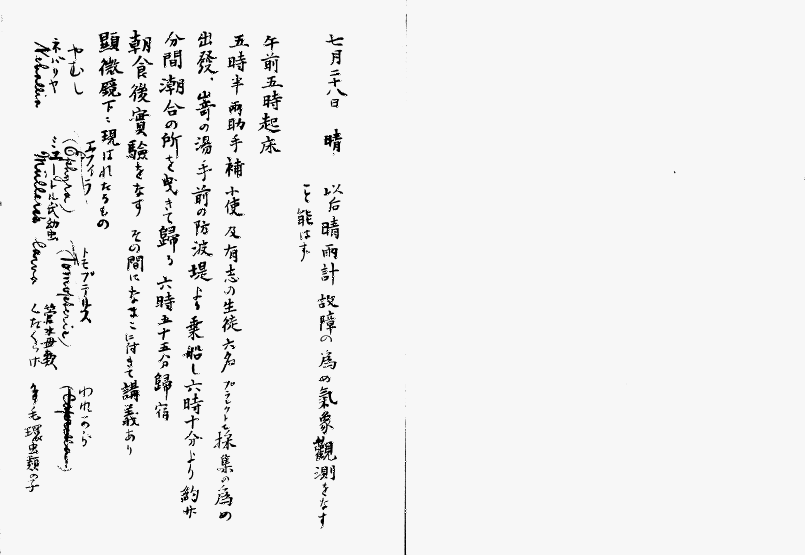 七月二十八日　晴　以后晴雨計故障の為め氣象觀測をなす
こと能はず
午前五時起床
五時半兩助手補小使及有志の生徒六名プランクトン採集の為め
出發、嵜の湯手前の防波堤より乗船し六時十分より約廿
分間潮合の所を曳きて歸る　六時五十五分歸宿
朝食後實驗をなす　その間になまこに付きて講義あり
顯微鏡下に現はれたるもの
やむし　エフィラ (Ephyra)　トモプテールス (Tomopteris)　われから
ネバリヤ Nebalia　ミュートル式幼虫 Müller's larva　管水母数 くだくらげ　多毛環虫類の子